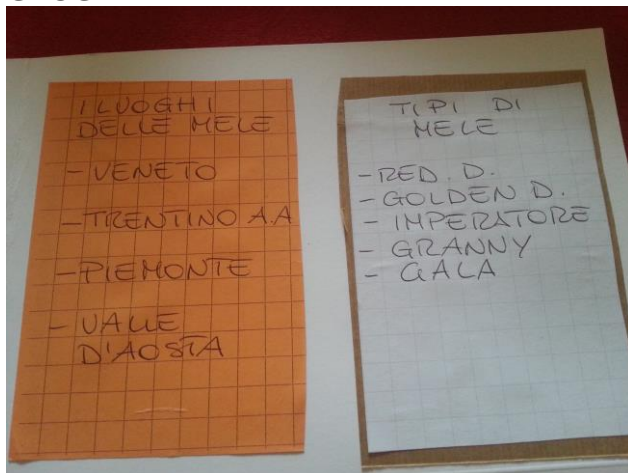 I LUOGHI
DELLE MELE
- VENETO
- TRENTINO A.A
- PIEMONTE
- VALLE
D'AOSTA
TIPI DI
MELE
- RED. D.
- GOLDEN D.
- IMPERATORE
- GRANNY
- GALA